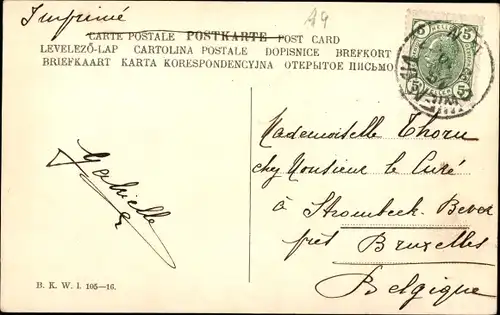 Imprimé
A9
CARTE POSTALE POSTKARTE POST CARD
LEVELEZŐ-LAP CARTOLINA POSTALE DOPISNICE BREFKORT
BRIEFKAART KARTA KORESPONDENCYJNA ОТКРЫТОЕ ПИСЬМО
5 5
5 5
Mademoiselle Thoru
chez Monsieur le Curé
à Strombeek-Bever
près Bruxelles
Belgique
Gabrielle
B. K. W. I. 105—16.